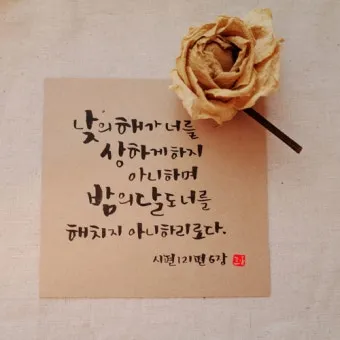 낮의해가너를
상하게하지
아니하며
밤의달도너를
해치지 아니하리로다.
시편 121편 6장